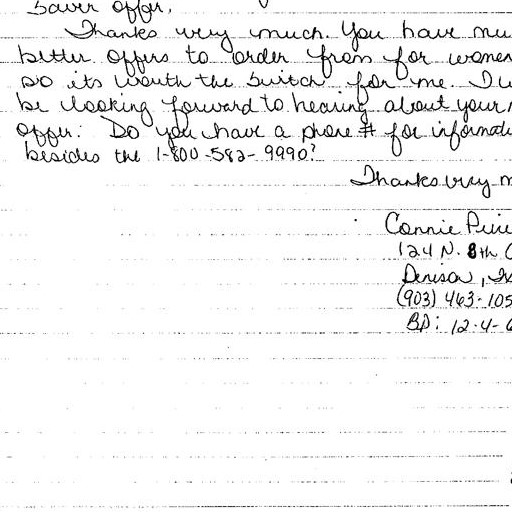 Saver offer.
Thanks very much. You have mu
better offers to order from for women
so its worth the switch for me. I w
be looking forward to hearing about your n
offer. Do you have a phone # for informati
besides the 1-800-582-9990?
Thanks very m
Connie
124 N. 8th
Denison,
(903) 463-105
BD: 12-4-6